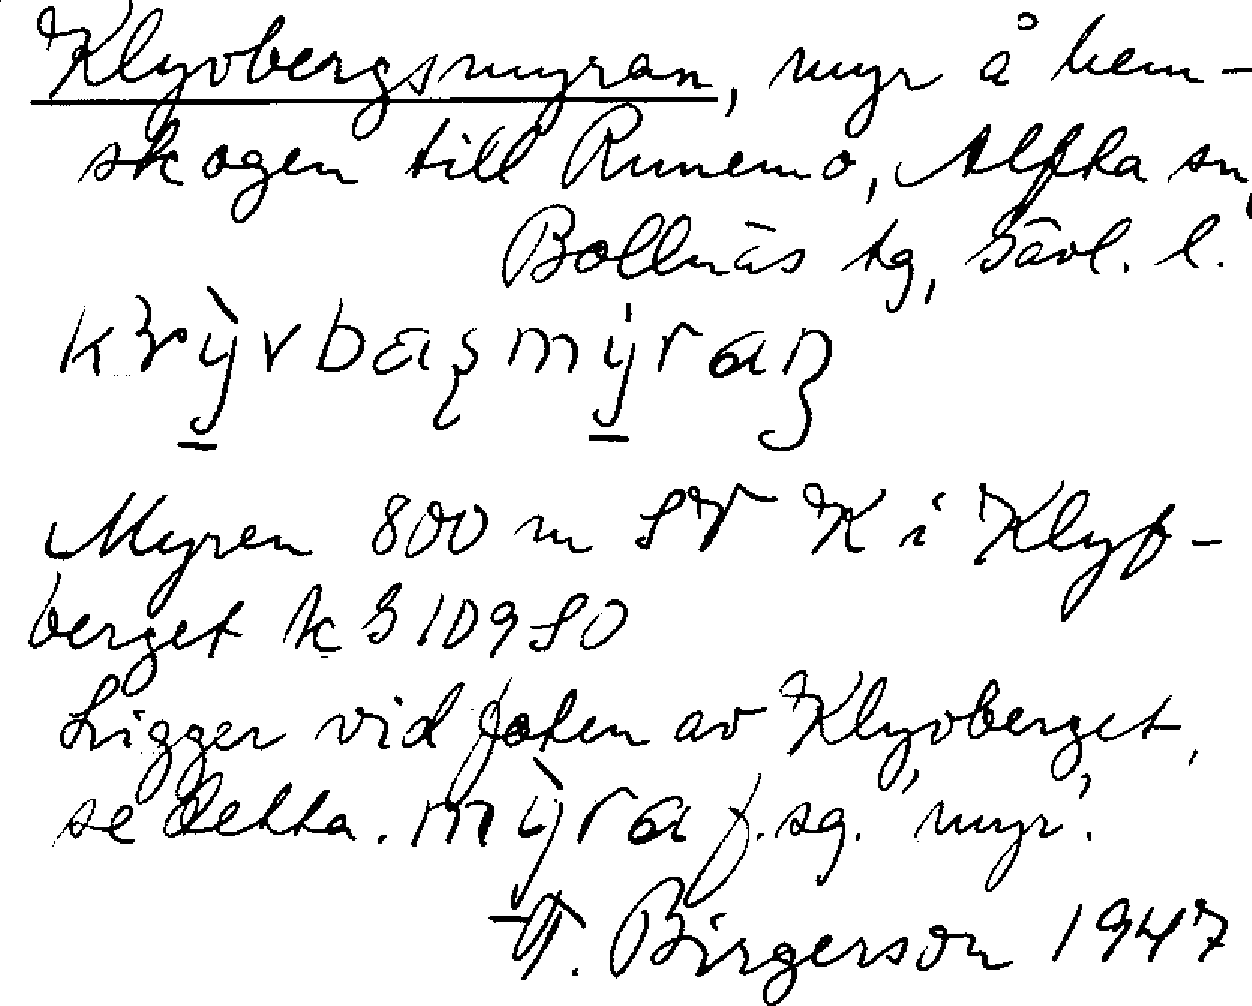 Klyvbergsmyran, myr å hem-
skogen till Runemo, Alfta sn,
Bollnäs tg, Gävl. l.
Myren 800 m SV K i Klyf-
berget k G 109 SO
Ligger vid foten av Klyvberget,
se detta. myra f. sg. 'myr'.
T. Birgerson 1947